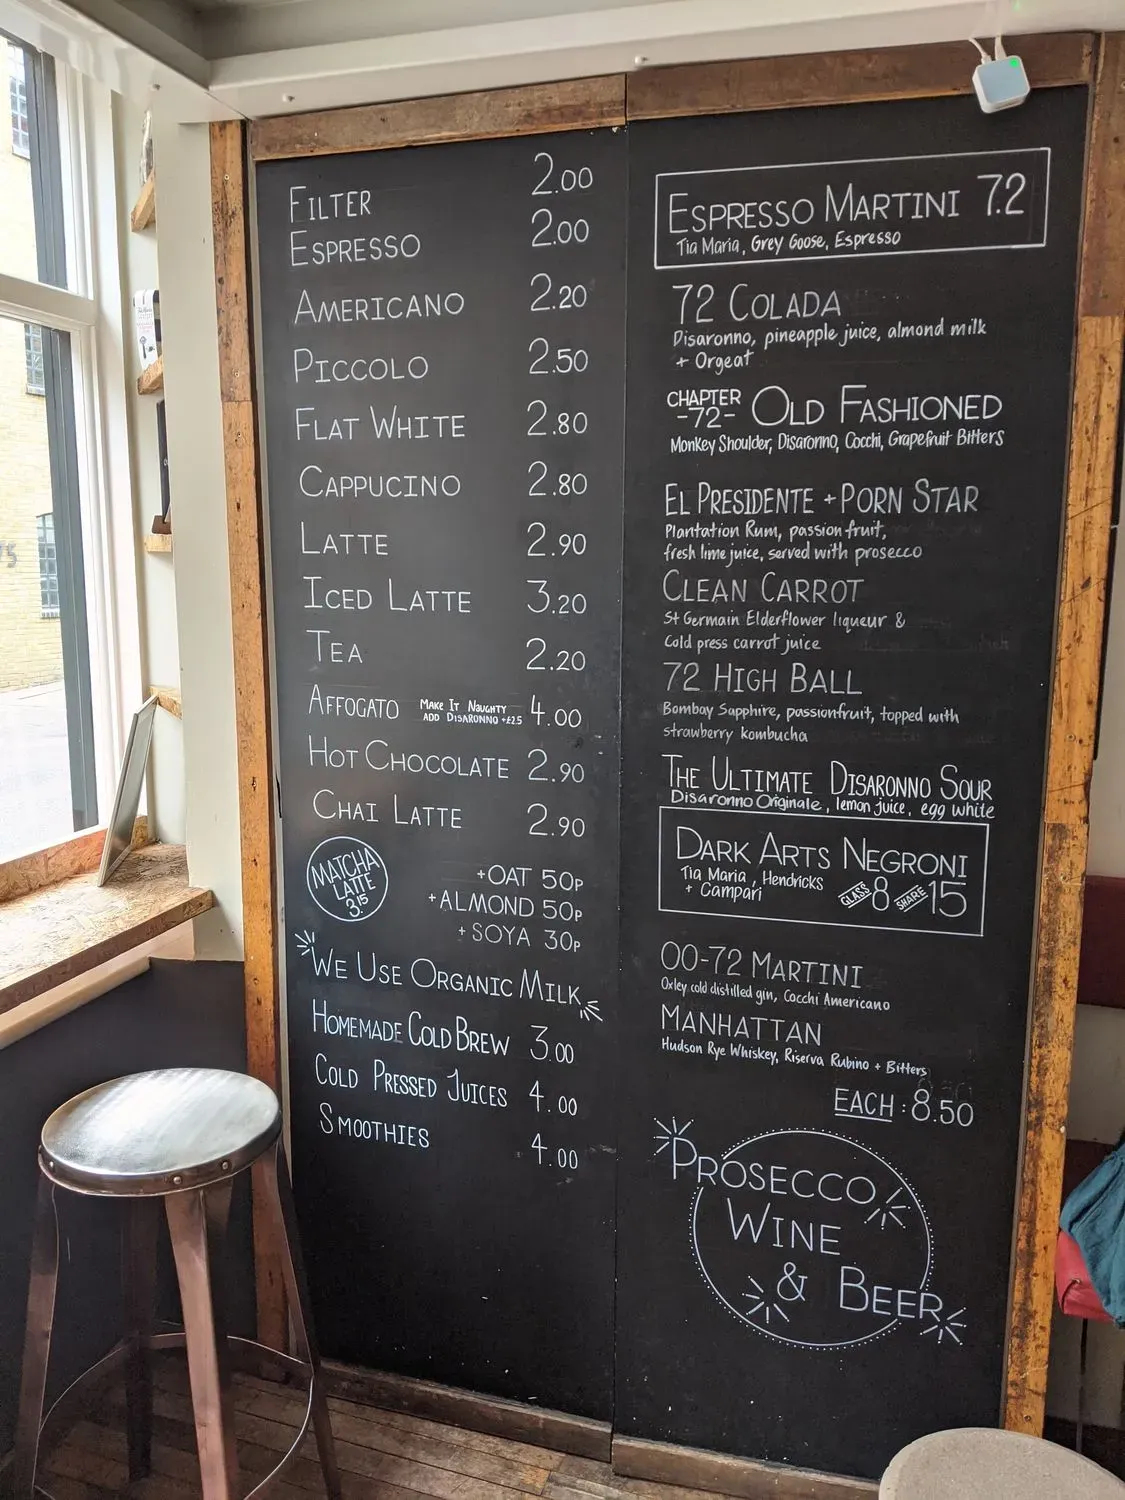 FILTER 2.00
ESPRESSO 2.00
AMERICANO 2.20
PICCOLO 2.50
FLAT WHITE 2.80
CAPPUCINO 2.80
LATTE 2.90
ICED LATTE 3.20
TEA 2.20
AFFOGATO MAKE IT NAUGHTY 4.00
ADD DISARONNO +£2.5
HOT CHOCOLATE 2.90
CHAI LATTE 2.90
MATCHA
LATTE
3.15
+OAT 50P
+ALMOND 50P
+SOYA 30P
WE USE ORGANIC MILK
HOMEMADE COLD BREW 3.00
COLD PRESSED JUICES 4.00
SMOOTHIES 4.00
ESPRESSO MARTINI 7.2
Tia Maria, Grey Goose, Espresso
72 COLADA
Disaronno, pineapple juice, almond milk
+ Orgeat
CHAPTER
-72- OLD FASHIONED
Monkey Shoulder, Disaronno, Cocchi, Grapefruit Bitters
EL PRESIDENTE + PORN STAR
Plantation Rum, passion fruit,
fresh lime juice, served with prosecco
CLEAN CARROT
St Germain Elderflower liqueur &
Cold press carrot juice
72 HIGH BALL
Bombay Sapphire, passionfruit, topped with
strawberry kombucha
THE ULTIMATE DISARONNO SOUR
Disaronno Originale, lemon juice, egg white
DARK ARTS NEGRONI
Tia Maria, Hendricks
+ Campari GLASS 8 SHARE 15
00-72 MARTINI
Oxley cold distilled gin, Cocchi Americano
MANHATTAN
Hudson Rye Whiskey, Riserva Rubino + Bitters
EACH : 8.50
PROSECCO
WINE
& BEER